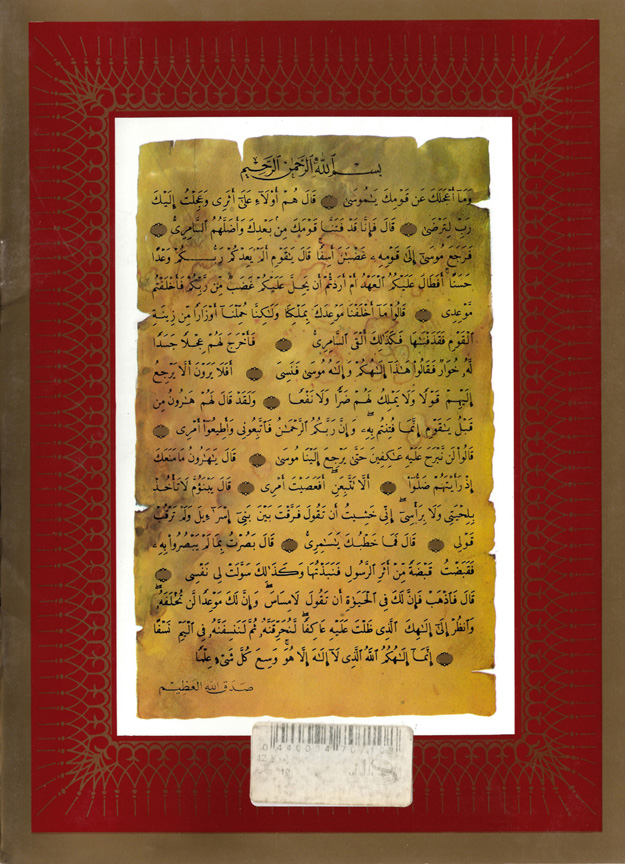 بِسْمِ ٱللَّهِ ٱلرَّحْمَٰنِ ٱلرَّحِيمِ
وَمَآ أَعْجَلَكَ عَن قَوْمِكَ يَٰمُوسَىٰ قَالَ هُمْ أُوْلَآءِ عَلَىٰٓ أَثَرِى وَعَجِلْتُ إِلَيْكَ
رَبِّ لِتَرْضَىٰ قَالَ فَإِنَّا قَدْ فَتَنَّا قَوْمَكَ مِنۢ بَعْدِكَ وَأَضَلَّهُمُ ٱلسَّامِرِىُّ
فَرَجَعَ مُوسَىٰٓ إِلَىٰ قَوْمِهِۦ غَضْبَٰنَ أَسِفًا قَالَ يَٰقَوْمِ أَلَمْ يَعِدْكُمْ رَبُّكُمْ وَعْدًا
حَسَنًا أَفَطَالَ عَلَيْكُمُ ٱلْعَهْدُ أَمْ أَرَدتُّمْ أَن يَحِلَّ عَلَيْكُمْ غَضَبٌ مِّن رَّبِّكُمْ فَأَخْلَفْتُم
مَّوْعِدِى قَالُوا۟ مَآ أَخْلَفْنَا مَوْعِدَكَ بِمَلْكِنَا وَلَٰكِنَّا حُمِّلْنَآ أَوْزَارًا مِّن زِينَةِ
ٱلْقَوْمِ فَقَذَفْنَٰهَا فَكَذَٰلِكَ أَلْقَى ٱلسَّامِرِىُّ فَأَخْرَجَ لَهُمْ عِجْلًا جَسَدًا
لَّهُۥ خُوَارٌ فَقَالُوا۟ هَٰذَآ إِلَٰهُكُمْ وَإِلَٰهُ مُوسَىٰ فَنَسِىَ أَفَلَا يَرَوْنَ أَلَّا يَرْجِعُ
إِلَيْهِمْ قَوْلًا وَلَا يَمْلِكُ لَهُمْ ضَرًّا وَلَا نَفْعًا وَلَقَدْ قَالَ لَهُمْ هَٰرُونُ مِن
قَبْلُ يَٰقَوْمِ إِنَّمَا فُتِنتُم بِهِۦ وَإِنَّ رَبَّكُمُ ٱلرَّحْمَٰنُ فَٱتَّبِعُونِى وَأَطِيعُوٓا۟ أَمْرِى
قَالُوا۟ لَن نَّبْرَحَ عَلَيْهِ عَٰكِفِينَ حَتَّىٰ يَرْجِعَ إِلَيْنَا مُوسَىٰ قَالَ يَٰهَٰرُونُ مَا مَنَعَكَ
إِذْ رَأَيْتَهُمْ ضَلُّوٓا۟ أَلَّا تَتَّبِعَنِ أَفَعَصَيْتَ أَمْرِى قَالَ يَبْنَؤُمَّ لَا تَأْخُذْ
بِلِحْيَتِى وَلَا بِرَأْسِىٓ إِنِّى خَشِيتُ أَن تَقُولَ فَرَّقْتَ بَيْنَ بَنِىٓ إِسْرَٰٓءِيلَ وَلَمْ تَرْقُبْ
قَوْلِى قَالَ فَمَا خَطْبُكَ يَٰسَٰمِرِىُّ قَالَ بَصُرْتُ بِمَا لَمْ يَبْصُرُوا۟ بِهِۦ
فَقَبَضْتُ قَبْضَةً مِّنْ أَثَرِ ٱلرَّسُولِ فَنَبَذْتُهَا وَكَذَٰلِكَ سَوَّلَتْ لِى نَفْسِى
قَالَ فَٱذْهَبْ فَإِنَّ لَكَ فِى ٱلْحَيَوٰةِ أَن تَقُولَ لَا مِسَاسَ وَإِنَّ لَكَ مَوْعِدًا لَّن تُخْلَفَهُۥ
وَٱنظُرْ إِلَىٰٓ إِلَٰهِكَ ٱلَّذِى ظَلْتَ عَلَيْهِ عَاكِفًا لَّنُحَرِّقَنَّهُۥ ثُمَّ لَنَنسِفَنَّهُۥ فِى ٱلْيَمِّ نَسْفًا
إِنَّمَآ إِلَٰهُكُمُ ٱللَّهُ ٱلَّذِى لَآ إِلَٰهَ إِلَّا هُوَ وَسِعَ كُلَّ شَىْءٍ عِلْمًا
صدق الله العظيم